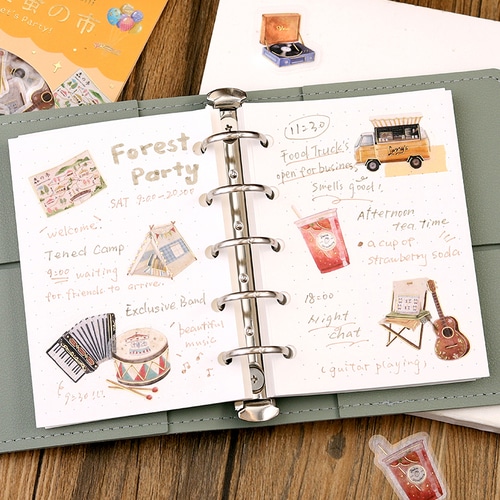 の市
Party!
Forest
Party
SAT 9:00-20:00
welcome!
Tened Camp
9:00 waiting
for friends to arrive.
Exclusive Band
beautiful
music
9:30 !!!
11:30
Food Truck's
open for business
Smells good!
Afternoon
tea time
• a cup of
strawberry soda
18:00
Night
chat
(guitar playing)